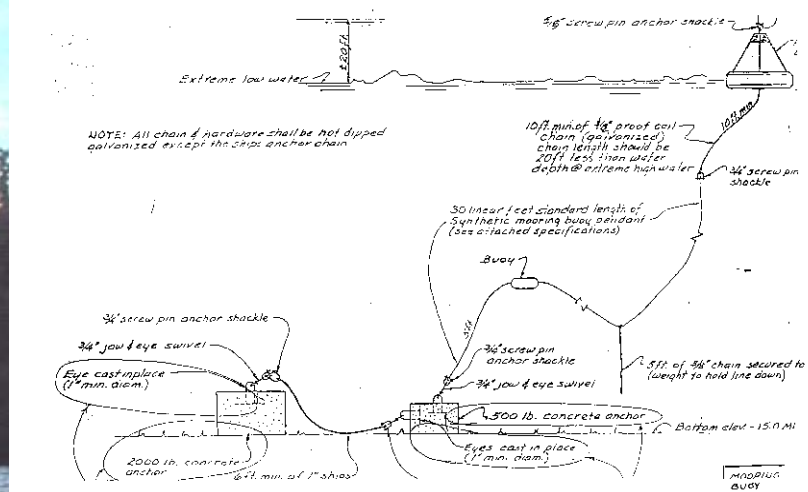 5/8" screw pin anchor shackle
±20ft.
Extreme low water
NOTE: All chain & hardware shall be hot dipped
galvanized except the ships anchor chain
10ft. min. of
proof coil
chain (galvanized)
chain length should be
20ft less than water
depth @ extreme high water
10ft. min.
3/4" screw pin
shackle
30 linear feet standard length of
Synthetic mooring buoy pendant
(see attached specifications)
Buoy
3/4" screw pin anchor shackle
3/4" jaw & eye swivel
Eye cast in place
(1" min. diam.)
3/4" screw pin
anchor shackle
3/4" jaw & eye swivel
5ft. of
chain secured to
(weight to hold line down)
500 lb. concrete anchor
Bottom elev -15.0
Eyes cast in place
(1" min. diam.)
2000 lb. concrete
anchor
6ft. min. of 1" ships
MOORING
BUOY